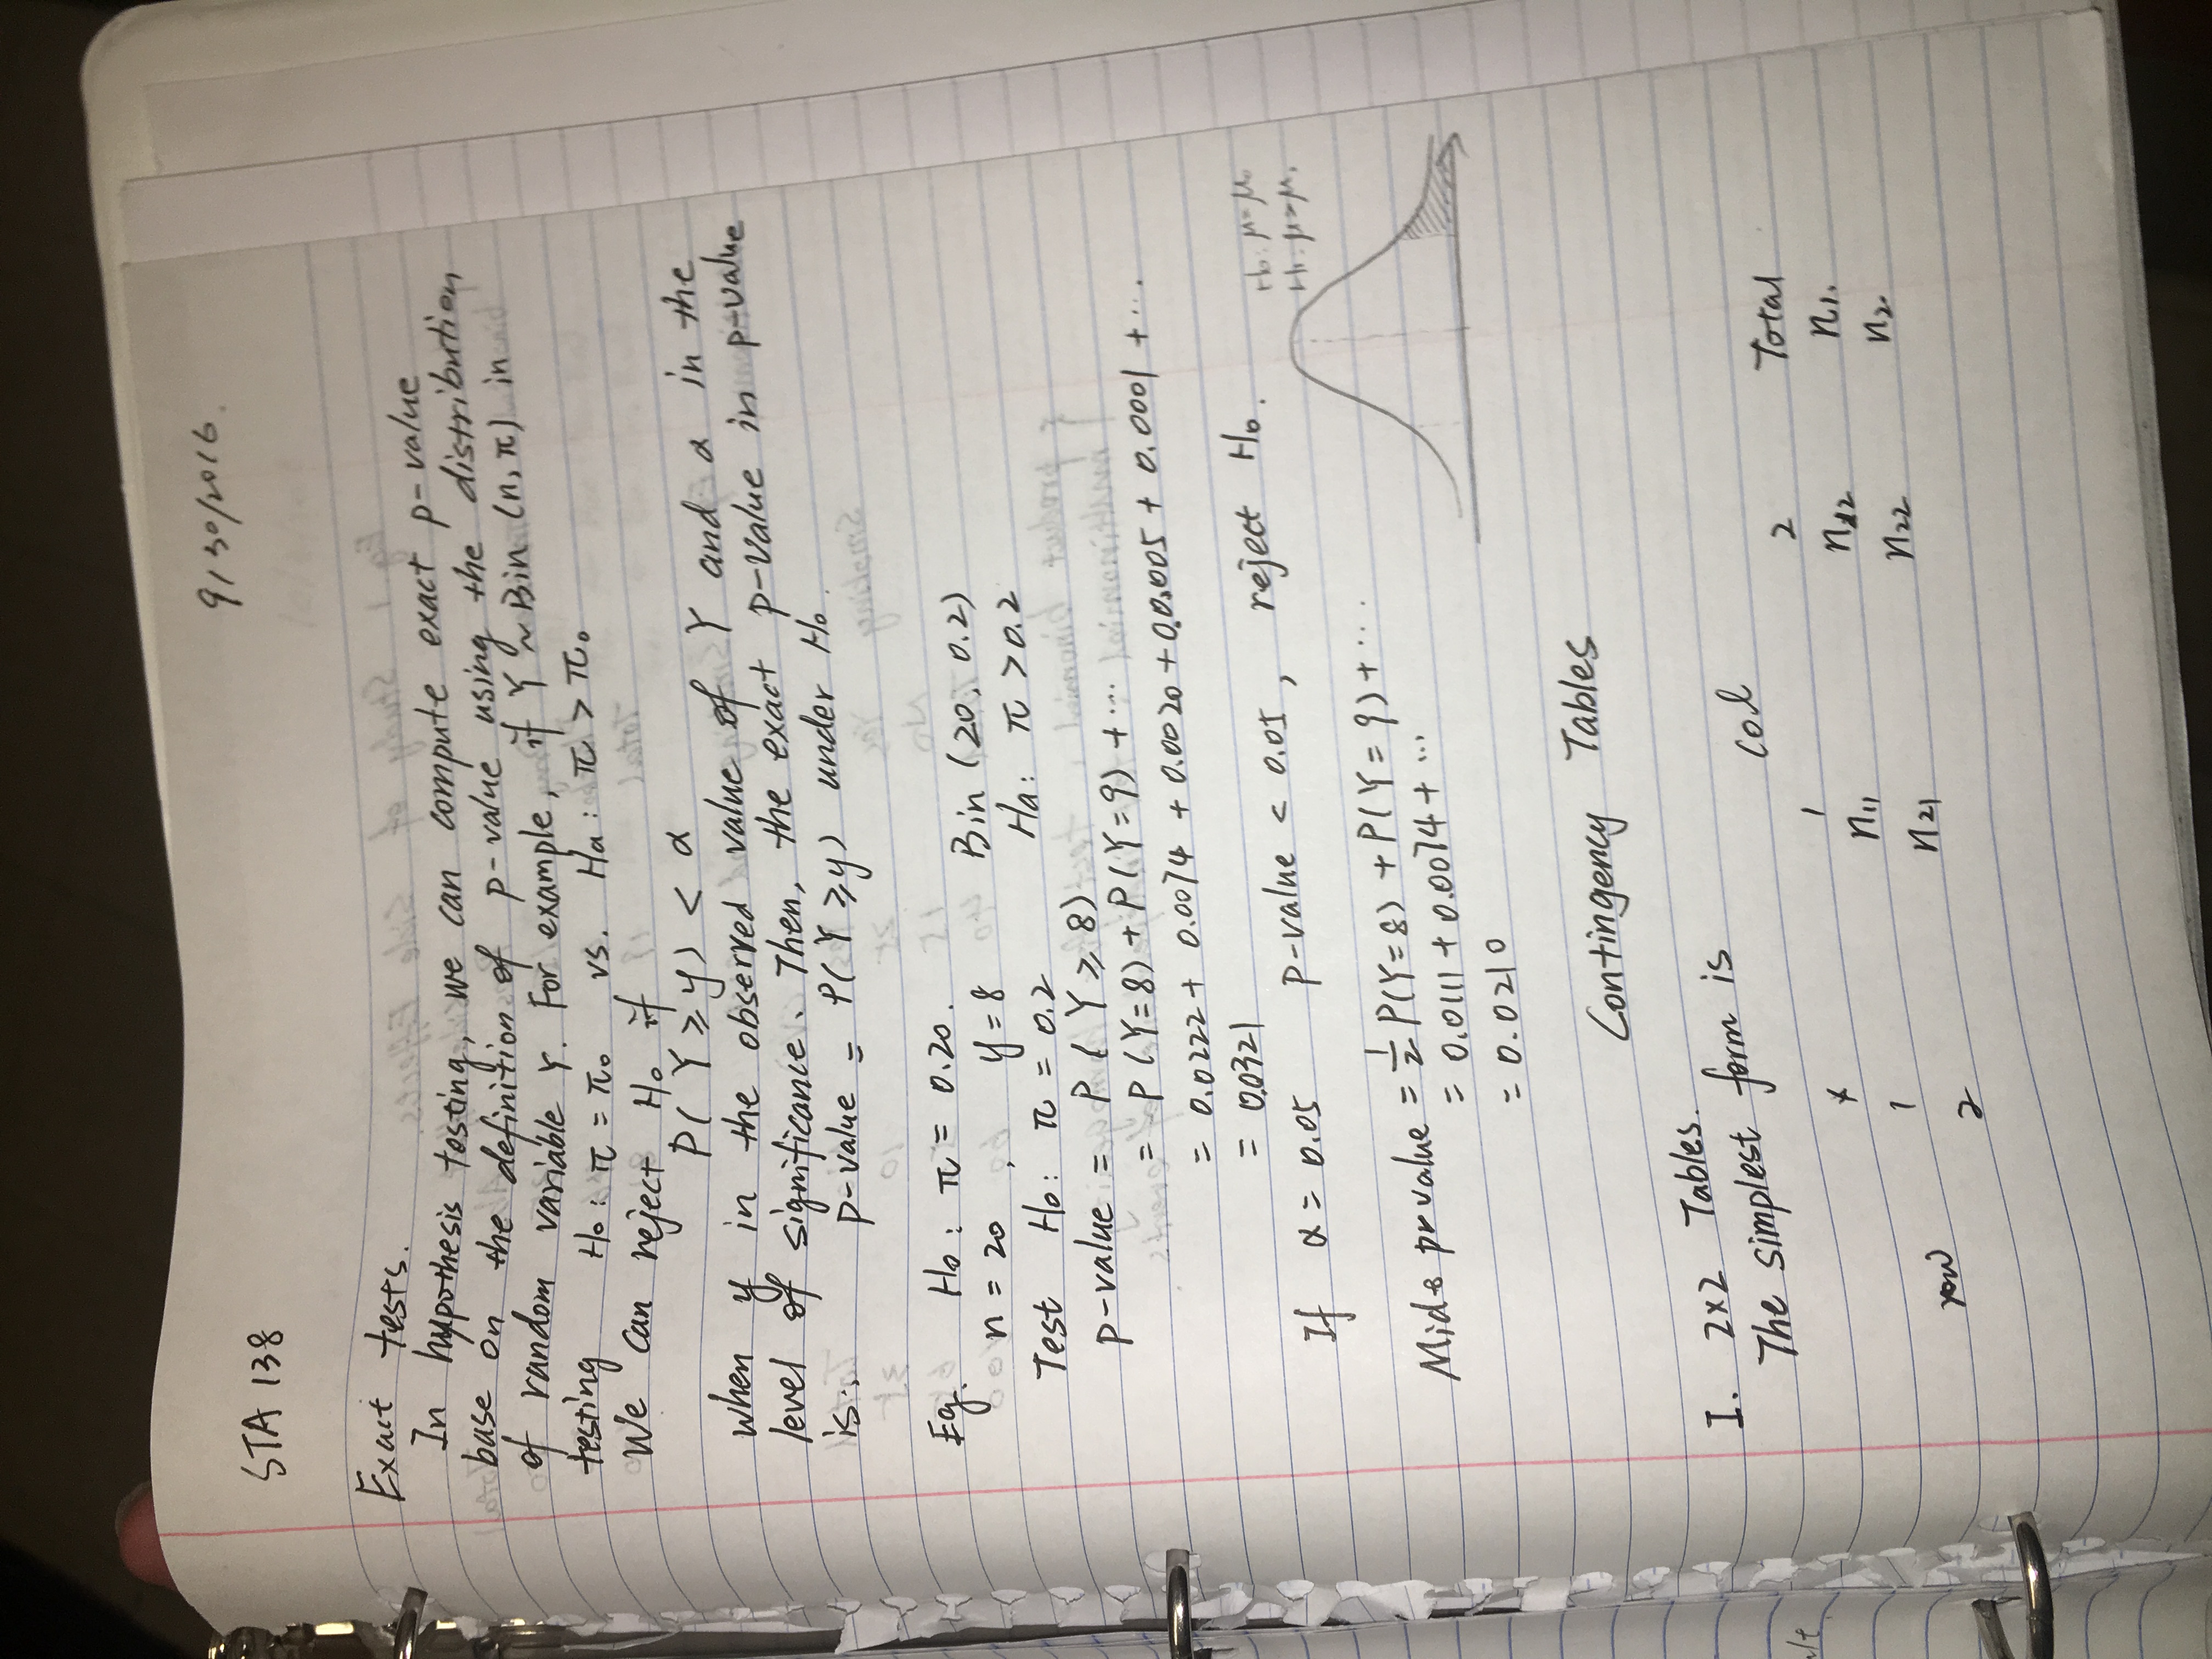 9/30/2016.
STA 138
Exact tests.
In hypothesis testing, we can compute exact p-value
base on the definition of p-value using the distribution
of random variable Y. For example, if Y ~ Bin (n, π) in
testing H₀: π = π₀ vs. Ha: π > π₀
We can reject H₀ if
P( Y ≥ y) < α
when y in the observed value of Y and α in the
level of significance. Then, the exact p-value in p-value
is: p-value = P( Y ≥ y) under H₀.
Eg. H₀: π = 0.20.
n = 20, y = 8 Bin (20, 0.2)
Test H₀: π = 0.2 Ha: π > 0.2
p-value = P ( Y ≥ 8)
= P (Y=8) + P(Y=9) + ...
= 0.0222 + 0.0074 + 0.0020 + 0.0005 + 0.0001 + ...
= 0.0321
If α = 0.05 p-value < 0.05, reject H₀.
H₀: μ=μ₀
Mid p value = 1/2 P(Y=8) + P(Y=9) + ...
= 0.0111 + 0.0074 + ...
= 0.0210
Contingency Tables
I. 2×2 Tables.
The simplest form is
col
x 1 2 Total
1 n₁₁ n₁₂ n₁.
row
2 n₂₁ n₂₂ n₂.